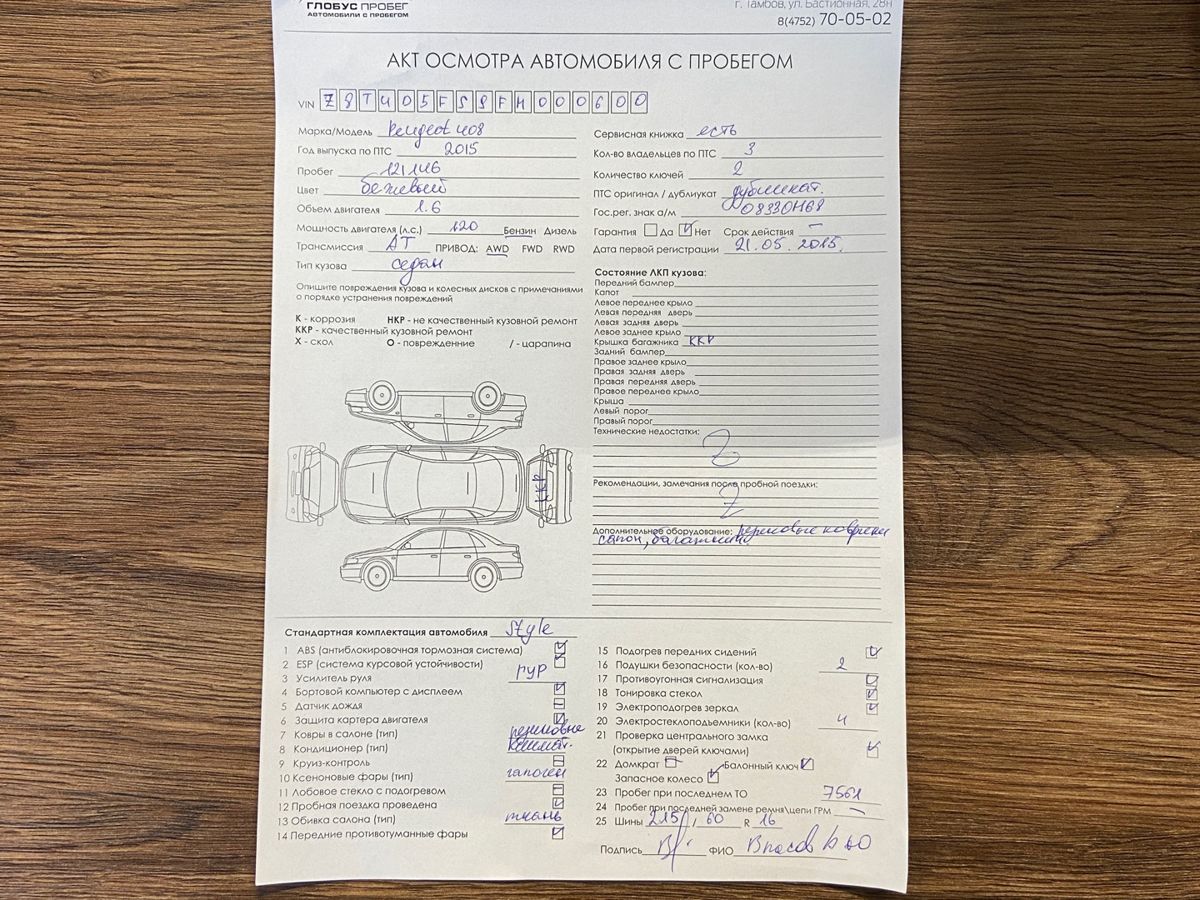 ГЛОБУС ПРОБЕГ
АВТОМОБИЛИ С ПРОБЕГОМ
г. Тамбов, ул. Бастионная, 28Н
8(4752) 70-05-02
АКТ ОСМОТРА АВТОМОБИЛЯ С ПРОБЕГОМ
VIN Z8T4D5FS9FM000600
Марка/Модель Peugeot 408
Год выпуска по ПТС 2015
Пробег 121146
Цвет бежевый
Объем двигателя 1.6
Мощность двигателя (л.с.) 120 Бензин Дизель
Трансмиссия АТ ПРИВОД: AWD FWD RWD
Тип кузова седан
Опишите повреждения кузова и колесных дисков с примечаниями
о порядке устранения повреждений
К - коррозия НКР - не качественный кузовной ремонт
ККР - качественный кузовной ремонт
Х - скол О - повреждение / - царапина
ККР
Сервисная книжка есть
Кол-во владельцев по ПТС 3
Количество ключей 2
ПТС оригинал / дубликат дубликат.
Гос.рег. знак а/м О833ОН68
Гарантия Да Нет Срок действия —
Дата первой регистрации 21.05.2015.
Состояние ЛКП кузова:
Передний бампер
Капот
Левое переднее крыло
Левая передняя дверь
Левая задняя дверь
Левое заднее крыло
Крышка багажника ККР
Задний бампер
Правое заднее крыло
Правая задняя дверь
Правая передняя дверь
Правое переднее крыло
Крыша
Левый порог
Правый порог
Технические недостатки:
Z
Рекомендации, замечания после пробной поездки:
Z
Дополнительное оборудование: резиновые коврики
салон, багажник
Стандартная комплектация автомобиля Style
1 ABS (антиблокировочная тормозная система)
2 ESP (система курсовой устойчивости)
3 Усилитель руля ГУР
4 Бортовой компьютер с дисплеем
5 Датчик дождя
6 Защита картера двигателя
7 Ковры в салоне (тип) резиновые
8 Кондиционер (тип) климат.
9 Круиз-контроль
10 Ксеноновые фары (тип) галоген
11 Лобовое стекло с подогревом
12 Пробная поездка проведена
13 Обивка салона (тип) ткань
14 Передние противотуманные фары
15 Подогрев передних сидений
16 Подушки безопасности (кол-во) 2
17 Противоугонная сигнализация
18 Тонировка стекол
19 Электроподогрев зеркал
20 Электростеклоподьемники (кол-во) 4
21 Проверка центрального замка
(открытие дверей ключами)
22 Домкрат Балонный ключ
Запасное колесо
23 Пробег при последнем ТО 7561
24 Пробег при последней замене ремня\цепи ГРМ —
25 Шины 215 / 60 R 16
Подпись ФИО Власов